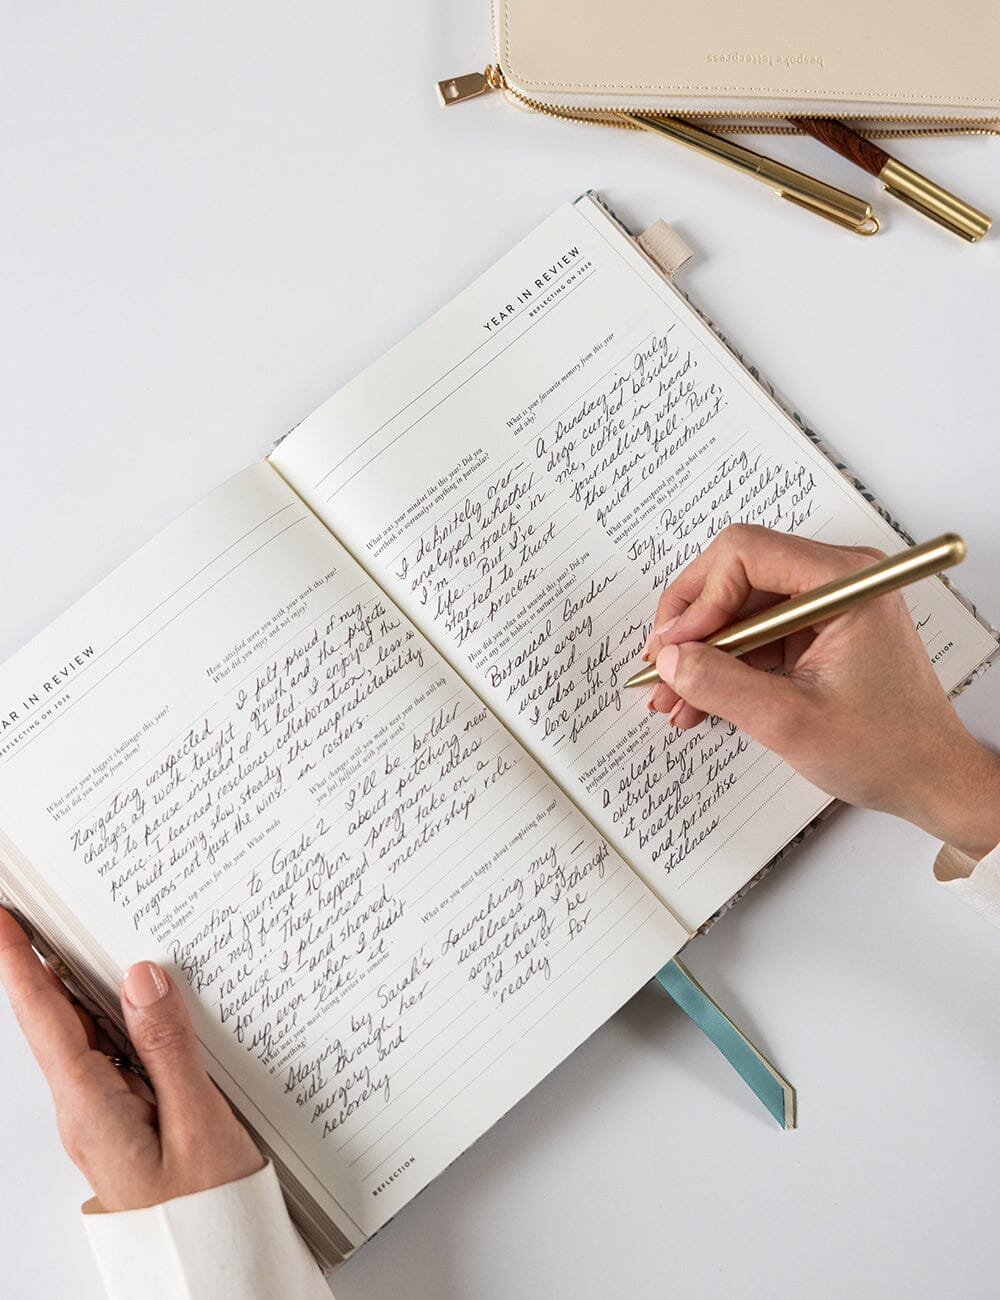 bespoke letterpress
AR IN REVIEW
REFLECTING ON 2026
What were your biggest challenges this year?
What did you learn from them?
Navigating unexpected
changes at work taught
me to pause instead of
panic. I learned resilience
is built during slow, steady
progress–not just the wins.
Identify three top wins for the year. What made
them happen?
Promotion to Grade 2
Started journalling
Ran my first 10km
race ... These happened
because I planned
for them–and showed
up even when I didn't
feel like it.
What was your most loving service to someone
or something?
Staying by Sarah's
side through her
surgery and
recovery
How satisfied were you with your work this year?
What did you enjoy and not enjoy?
I felt proud of my
growth and the projects
I led. I enjoyed the
collaboration, less so
the unpredictability
in rosters.
What changes will you make next year that will help
you feel fulfilled with your work?
I'll be bolder
about pitching new
program ideas
and take on a
mentorship role.
What are you most happy about completing this year?
Launching my
wellness blog –
something I thought
I'd never be
"ready" for
REFLECTION
YEAR IN REVIEW
REFLECTING ON 2026
What was your mindset like this year? Did you
overthink or overanalyze anything in particular?
I definitely over–
analysed whether
I'm "on track" in
life.. But I've
started to trust
the process.
How did you relax and unwind this year? Did you
start any new hobbies or nurture old ones?
Botanical Garden
walks every
weekend.
I also fell in
love with journal
–finally
Where did you visit this
profound impact upon you?
A silent
outside Byron
it changed how I
breathe, think
and prioritise
stillness
What is your favourite memory from this year
and why?
A Sunday in July–
dogs curled beside
me, coffee in hand,
journalling while
the rain fell. Pure,
quiet contentment.
What was an unexpected joy and what was an
unexpected sorrow this past year?
Joy: Reconnecting
with Jess and our
weekly dog walks
friendship
and
her
LECTION